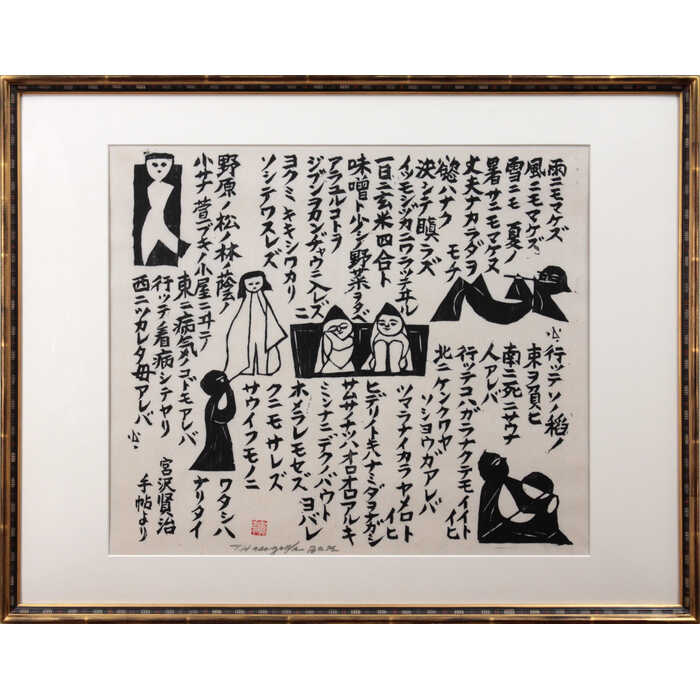 雨ニモマケズ
風ニモマケズ
雪ニモ 夏ノ
暑サニモマケヌ
丈夫ナカラダヲ
モチ
慾ハナク
決シテ瞋ラズ
イツモシヅカニワラッテヰル
一日ニ玄米四合ト
味噌ト少シノ野菜ヲタベ
アラユルコトヲ
ジブンヲカンヂャウニ入レズ
ニ
ヨクミ キキシワカリ
ソシテワスレズ
野原ノ松ノ林ノ蔭ノ
小サナ萱ブキノ小屋ニヰテ
東ニ病気ノコドモアレバ
行ッテ看病シテヤリ
西ニツカレタ母アレバ
行ッテソノ稲ノ
束ヲ負ヒ
南ニ死ニサウナ
人アレバ
行ッテコハガラナクテモイイト
イヒ
北ニケンクヮヤ
ソショウガアレバ
ツマラナイカラヤメロト
イヒ
ヒデリノトキハナミダヲナガシ
サムサノナツハオロオロアルキ
ミンナニデクノバウト
ヨバレ
ホメラレモセズ
クニモサレズ
サウイフモノニ
ワタシハ
ナリタイ
宮沢賢治
手帖より